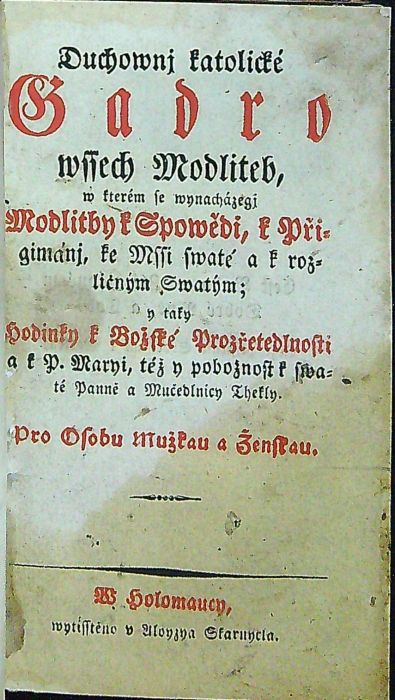 Duchownj katolické
Gadro
wssech Modliteb,
w kterém se wynacházegj
Modlitby k Spowědi, k Při-
gimánj, ke Mssi swaté a k roz-
ličným Swatým;
y taky
Hodinky k Božské Prozřetedlnosti
a k P. Maryi, též y pobožnost k swa-
té Panně a Mučedlnicy Thekly.
Pro Osobu Mužskau a Ženskau.
W Holomaucy,
wytisstěno v Aloyzya Skarnycla.